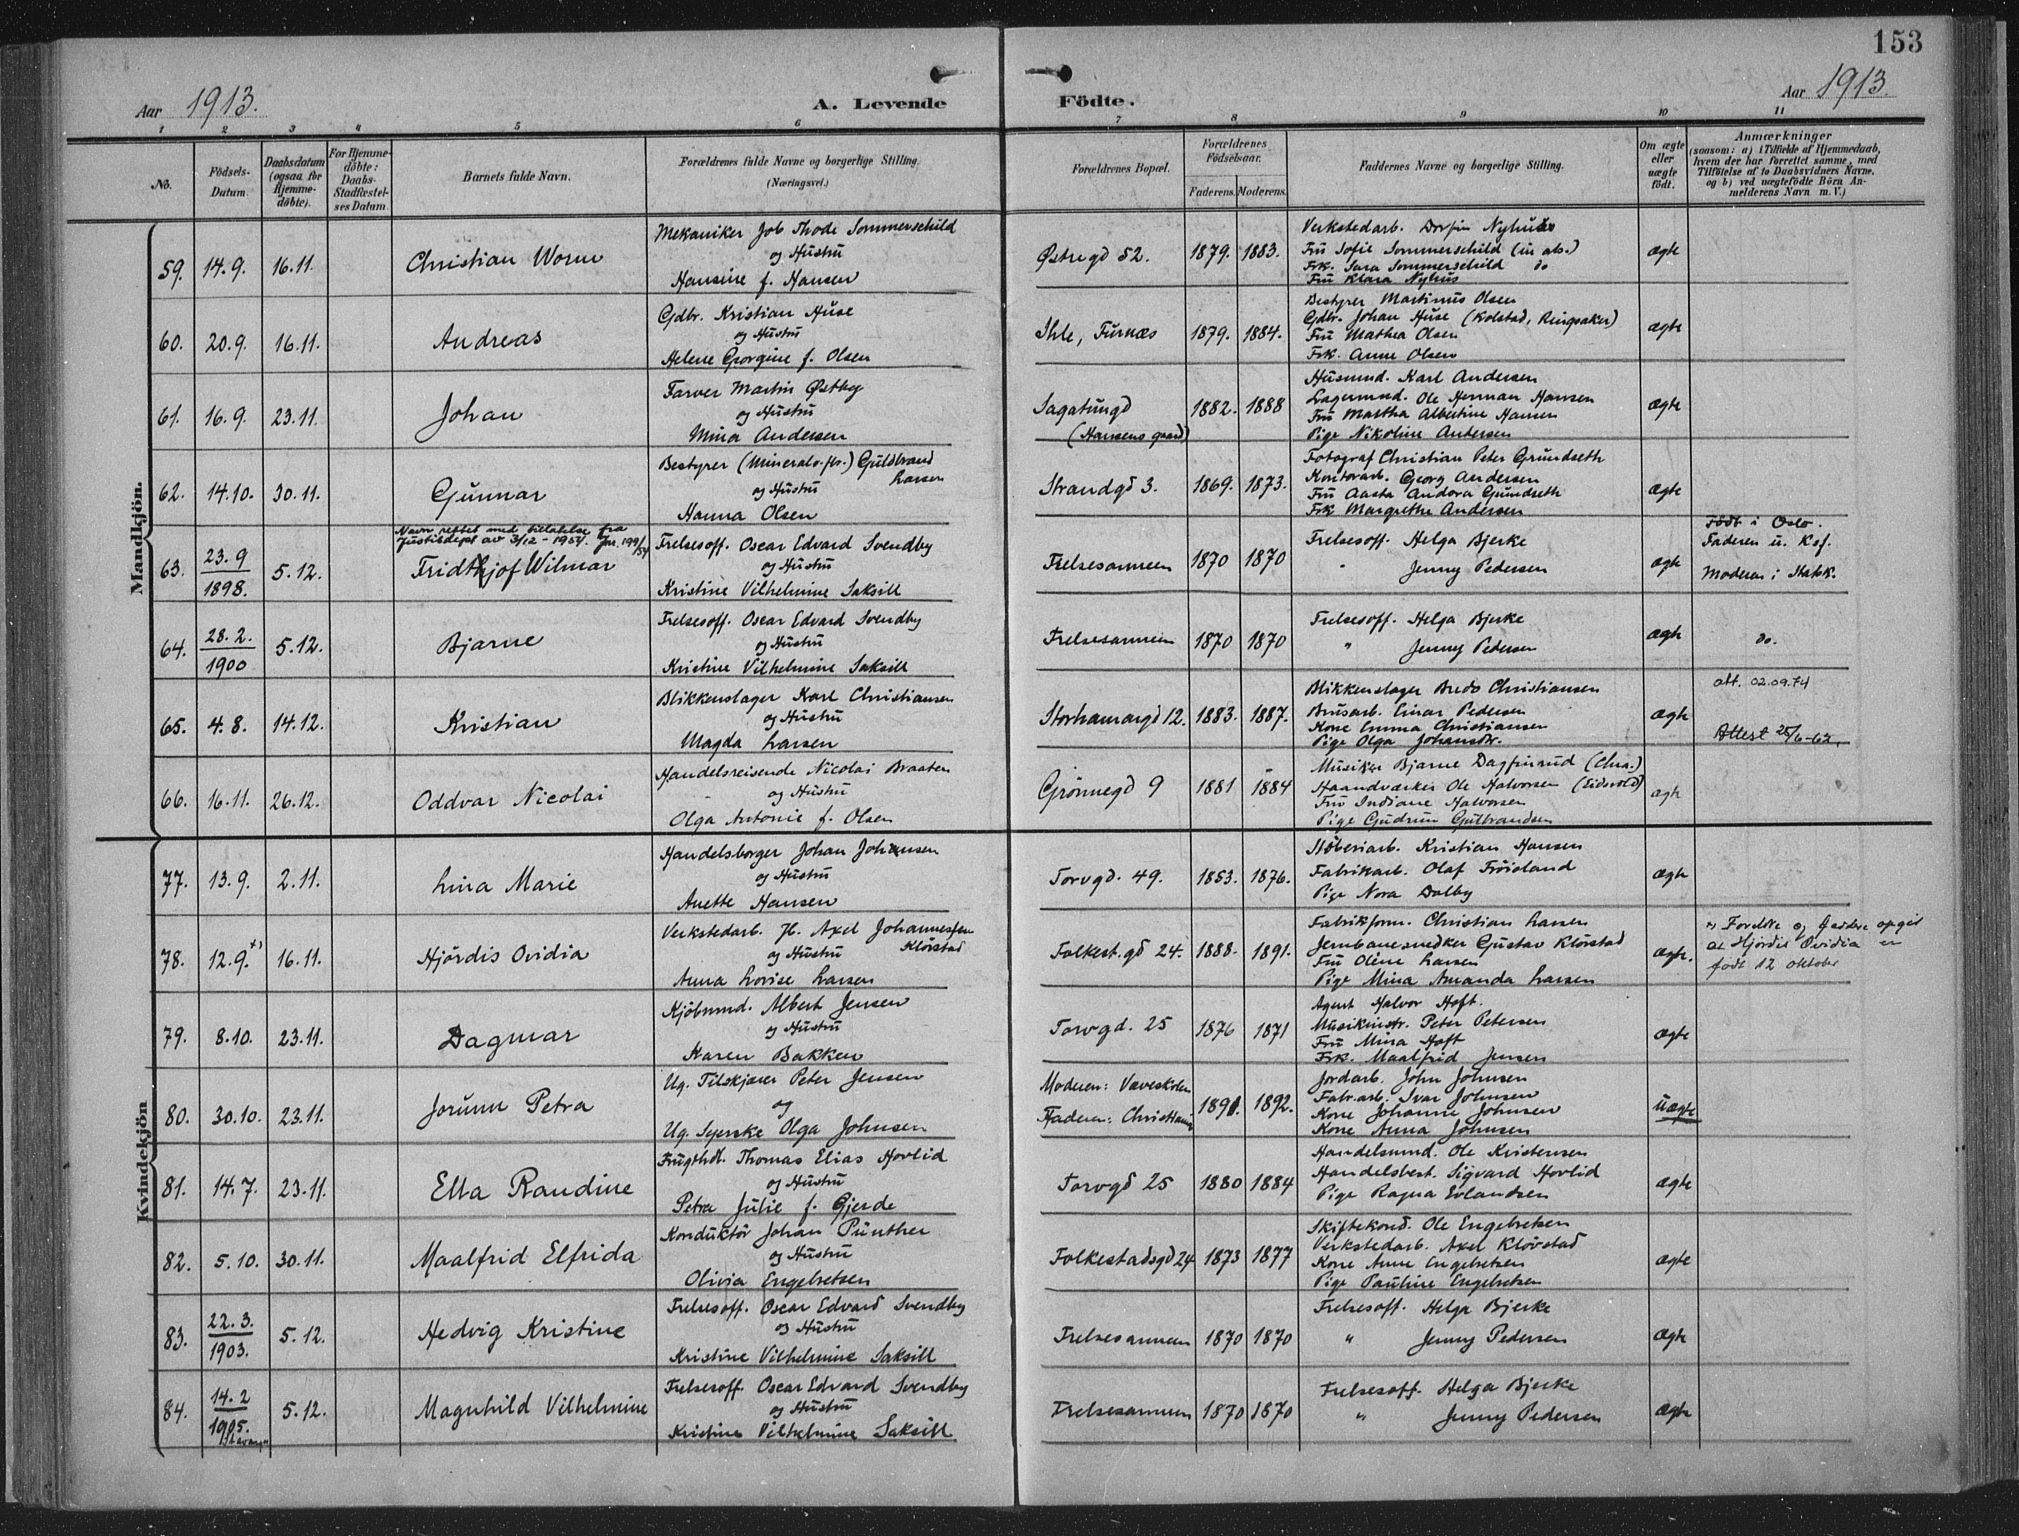 153
Aar 1913.
A. Levende
Födte.
Aar 1913.
1 2 3 4 5 6 7 8 9 10 11
No.
Födsels-
Datum.
Daabsdatum
(ogsaa for
Hjemme-
döbte).
For Hjemme-
döbte:
Daabs-
Stadfæstel-
ses Datum.
Barnets fulde Navn.
Forældrenes fulde Navne og borgerlige Stilling.
(Næringsvei.)
Forældrenes Bopæl.
Forældrenes
Födselsaar.
Faderens. Moderens.
Faddernes Navne og borgerlige Stilling.
Om ægte
eller
uægte
födt.
Anmærkninger
(saasom: a) i Tilfælde af Hjemmedaab,
hvem der har forrettet samme, med
Tilföielse af to Daabsvidners Navne,
og b) ved uægtefödte Börn An-
melderens Navn m. V.)
Mandkjön.
59. 14.9. 16.11. Christian Worm
Mekaniker Job Thode Sommerschild
og Hustru
Hansine f. Hansen
Østregd 52. 1879. 1883.
Verkstedarb. Dorfin Nyhuus
Fru Sofie Sommerschild (in abs.)
Frk. Sara Sommerschild do
Fru Klara Nyhus
ægte
60. 20.9. 16.11. Andreas
Gdbr. Kristian Huse
og Hustru
Helene Georgine f. Olsen
Ihle, Furnæs 1879. 1884.
Bestyrer Martinus Olsen
Gdbr. Johan Huse (Kolstad, Ringsaker)
Fru Mathea Olsen
Frk. Anne Olsen
ægte
61. 16.9. 23.11. Johan
Farver Martin Østby
og Hustru
Mina Andersen
Sagatungd
(Hansens gaard)
1882. 1888
Husmnd. Karl Andersen
Lagermnd. Ole Herman Hansen
Fru Martha Albertine Hansen
Pige Nikoline Andersen
ægte
62. 14.10. 30.11. Gunnar
Bestyrer (Mineralv.fbr.) Guldbrand
Larsen
og Hustru
Hanna Olsen
Strandgd 3. 1869. 1873.
Fotograf Christian Peter Grundseth
Kontorarb. Georg Andersen
Fru Aasta Andora Grundseth
Frk Margrethe Andersen
ægte
Navn rettet med tillatelse fra
Justisdept av 3/12-1954. Jnr. 199/54
63. 23.9
1898. 5.12. Fridthjof Wilmar
Frelsesoff. Oscar Edvard Svendby
og Hustru
Kristine Vilhelmine Saksill
Frelsesarmeen 1870 1870
Frelsesoff. Helga Bjerke
" Jenny Pedersen
ægte
Født i Oslo.
Faderen u. Ksf.
Moderen i Statsk.
64. 28.2.
1900 5.12. Bjarne
Frelsesoff. Oscar Edvard Svendby
og Hustru
Kristine Vilhelmine Saksill
Frelsesarmeen 1870 1870
Frelsesoff. Helga Bjerke
" Jenny Pedersen
ægte
do.
65. 4.8. 14.12. Kristian
Blikkenslager Karl Christiansen
og Hustru
Magda Larsen
Storhamargd 12. 1883. 1887.
Blikkenslager Bredo Christiansen
Brusarb. Einar Pedersen
Kone Emma Christiansen
Pige Olga Johansdr.
ægte
att. 02.09.74
Attest 25/6-62.
66. 16.11. 26.12. Oddvar Nicolai
Handelsreisende Nicolai Braaten
og Hustru
Olga Antonie f. Olsen
Grønnegd 9 1881 1884
Musiker Bjarne Dagfinrud (Chra.)
Haandværker Ole Halvorsen (Eidsvold)
Fru Indiane Halvorsen
Pige Gudrun Gulbrandsen
ægte
Kvindekjön
77. 13.9. 2.11. Lina Marie
Handelsborger Johan Johansen
og Hustru
Anette Hansen
Torvgd. 49. 1853. 1876.
Støberiarb. Kristian Hansen
Fabrikarb. Olaf Frøisland
Pige Nora Dalby
ægte
78. 12.9. +) 16.11. Hjørdis Ovidia
Verkstedarb. H. Axel Johannessen
Kløvstad
og Hustru
Anna Lovise Larsen
Folkest.gd 24. 1888. 1891.
Fabrikform. Christian Larsen
Jernbanesnedker Gustav Kløvstad
Fru Oline Larsen
Pige Mina Amanda Larsen
ægte.
+) Foreldre og faddere opgir
at Hjørdis Ovidia er
født 12 oktober
79. 8.10. 23.11. Dagmar
Kjøbmnd. Albert Jensen
og Hustru
Karen Bakken
Torvgd. 25 1876 1871
Agent Halvor Hoft.
Musikinstr. Peter Petersen
Fru Mina Hoft
Frk. Maalfrid Jensen
ægte
80. 30.10. 23.11. Jorunn Petra
Ug. Tilskjærer Peter Jensen
og
Ug. Syerske Olga Johnsen
Moderen: Væveskolen
Faderen: Christiania
1891. 1892.
Jordarb. John Johnsen
Fabr.arb. Ivar Johnsen
Kone Johanne Johnsen
Kone Anna Johnsen
uægte
81. 14.7. 23.11. Ella Randine
Frugthdl. Thomas Elias Hovlid
og Hustru
Petra Julie f. Gjerde
Torvgd 25 1880 1884
Handelsmnd. Ole Kristensen
Handelsbest. Sigvard Hovlid
Pige Ragna Evlandsen
ægte
82. 5.10. 30.11. Maalfrid Elfrida
Konduktør Johan Pünther
og Hustru
Olivia Engebretsen
Folkestadsgd 24 1873 1877
Skiftekond. Ole Engebretsen
Verkstedarb. Axel Kløvstad
Kone Anne Engebretsen
Pige Pauline Engebretsen
ægte
83. 22.3.
1903. 5.12. Hedvig Kristine
Frelsesoff. Oscar Edvard Svendby
og Hustru
Kristine Vilhelmine Saksill
Frelsesarmeen 1870 1870
Frelsesoff. Helga Bjerke
" Jenny Pedersen
ægte
84. 14.2
1905.
Stavanger
5.12. Magnhild Vilhelmine
Frelsesoff. Oscar Edvard Svendby
og Hustru
Kristine Vilhelmine Saksill
Frelsesarmeen 1870 1870
Frelsesoff. Helga Bjerke
" Jenny Pedersen
ægte